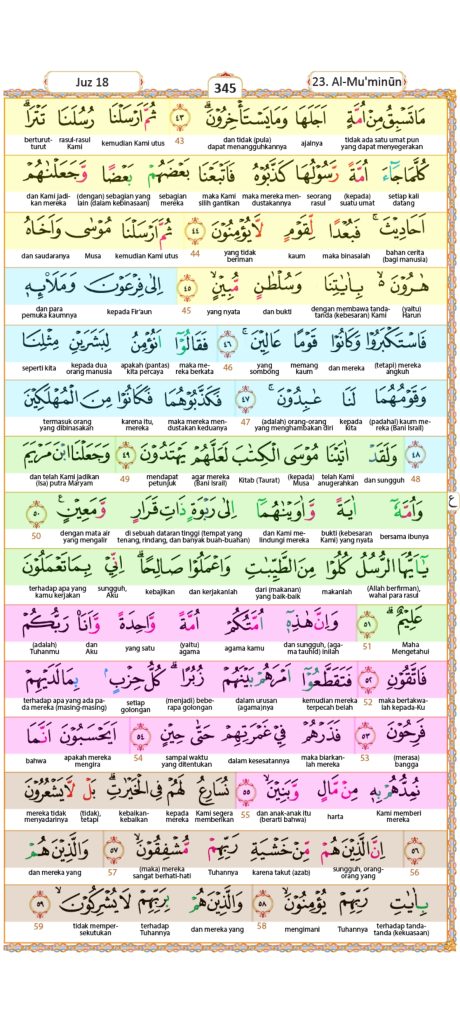 Juz 18
345
23. Al-Mu'minūn
مَا تَسْبِقُ مِنْ اُمَّةٍ اَجَلَهَا وَمَا يَسْتَأْخِرُوْنَ ۗ ٤٣ ثُمَّ اَرْسَلْنَا رُسُلَنَا تَتْرَا ۗ
tidak ada satu umat pun yang dapat menyegerakan ajalnya dan tidak (pula) dapat menangguhkannya 43 kemudian Kami utus rasul-rasul Kami berturut-turut
كُلَّمَا جَاۤءَ اُمَّةً رَّسُوْلُهَا كَذَّبُوْهُ فَاَتْبَعْنَا بَعْضَهُمْ بَعْضًا وَّجَعَلْنٰهُمْ
setiap kali datang (kepada) suatu umat seorang rasul maka mereka mendustakannya maka Kami silih gantikan sebagian mereka (dengan) sebagian yang lain (dalam kebinasaan) dan Kami jadikan mereka
اَحَادِيْثَ ۚ فَبُعْدًا لِّقَوْمٍ لَّا يُؤْمِنُوْنَ ٤٤ ثُمَّ اَرْسَلْنَا مُوْسٰى وَاَخَاهُ
bahan cerita (bagi manusia) maka binasalah kaum yang tidak beriman 44 kemudian Kami utus Musa dan saudaranya
هٰرُوْنَ ەۙ بِاٰيٰتِنَا وَسُلْطٰنٍ مُّبِيْنٍ ۙ ٤٥ اِلٰى فِرْعَوْنَ وَمَلَا۟ىِٕهٖ
(yaitu) Harun dengan membawa tanda-tanda (kebesaran) Kami dan bukti yang nyata 45 kepada Fir'aun dan para pemuka kaumnya
فَاسْتَكْبَرُوْا وَكَانُوْا قَوْمًا عَالِيْنَ ۚ ٤٦ فَقَالُوْٓا اَنُؤْمِنُ لِبَشَرَيْنِ مِثْلِنَا
(tetapi) mereka angkuh dan mereka memang kaum yang sombong 46 maka mereka berkata apakah (pantas) kita percaya kepada dua orang manusia seperti kita
وَقَوْمُهُمَا لَنَا عٰبِدُوْنَ ۚ ٤٧ فَكَذَّبُوْهُمَا فَكَانُوْا مِنَ الْمُهْلَكِيْنَ
(padahal) kaum mereka (Bani Israil) kepada kita (adalah) orang-orang yang menghambakan diri 47 maka mereka mendustakan keduanya karena itu, mereka termasuk orang yang dibinasakan
٤٨ وَلَقَدْ اٰتَيْنَا مُوْسَى الْكِتٰبَ لَعَلَّهُمْ يَهْتَدُوْنَ ٤٩ وَجَعَلْنَا ابْنَ مَرْيَمَ
48 dan sungguh telah Kami anugerahkan (kepada) Musa Kitab (Taurat) agar mereka (Bani Israil) mendapat petunjuk 49 dan telah Kami jadikan (Isa) putra Maryam
وَاُمَّهٗٓ اٰيَةً وَّاٰوَيْنٰهُمَآ اِلٰى رَبْوَةٍ ذَاتِ قَرَارٍ وَّمَعِيْنٍ ۚ ٥٠
bersama ibunya bukti (kebesaran Kami) yang nyata dan Kami melindungi mereka di sebuah dataran tinggi (tempat yang tenang, rindang, dan banyak buah-buahan) dengan mata air yang mengalir 50
يٰٓاَيُّهَا الرُّسُلُ كُلُوْا مِنَ الطَّيِّبٰتِ وَاعْمَلُوْا صَالِحًا ۗ اِنِّيْ بِمَا تَعْمَلُوْنَ
(Allah berfirman), wahai para rasul makanlah dari (makanan) yang baik-baik dan kerjakanlah kebajikan sungguh, Aku terhadap apa yang kamu kerjakan
ع
عَلِيْمٌ ۗ ٥١ وَاِنَّ هٰذِهٖٓ اُمَّتُكُمْ اُمَّةً وَّاحِدَةً وَّاَنَا۠ رَبُّكُمْ
Maha Mengetahui 51 dan sungguh, (agama tauhid) inilah agama kamu (yaitu) agama yang satu dan Aku (adalah) Tuhanmu
فَاتَّقُوْنِ ٥٢ فَتَقَطَّعُوْٓا اَمْرَهُمْ بَيْنَهُمْ زُبُرًا ۗ كُلُّ حِزْبٍۢ بِمَا لَدَيْهِمْ
maka bertakwalah kepada-Ku 52 kemudian mereka terpecah belah dalam urusan (agama)nya (menjadi) beberapa golongan setiap golongan terhadap apa yang ada pada mereka (masing-masing)
فَرِحُوْنَ ٥٣ فَذَرْهُمْ فِيْ غَمْرَتِهِمْ حَتّٰى حِيْنٍ ٥٤ اَيَحْسَبُوْنَ اَنَّمَا
(merasa) bangga 53 maka biarkanlah mereka dalam kesesatannya sampai waktu yang ditentukan 54 apakah mereka mengira bahwa
نُمِدُّهُمْ بِهٖ مِنْ مَّالٍ وَّبَنِيْنَ ۙ ٥٥ نُسَارِعُ لَهُمْ فِى الْخَيْرٰتِ ۗ بَلْ لَّا يَشْعُرُوْنَ
Kami memberi mereka harta dan anak-anak itu (berarti bahwa) 55 Kami segera memberikan kepada mereka kebaikan-kebaikan (tidak), tetapi mereka tidak menyadarinya
٥٦ اِنَّ الَّذِيْنَ هُمْ مِّنْ خَشْيَةِ رَبِّهِمْ مُّشْفِقُوْنَ ۙ ٥٧ وَالَّذِيْنَ هُمْ
56 sungguh, orang-orang yang karena takut (azab) Tuhannya (maka) mereka sangat berhati-hati 57 dan mereka yang
بِاٰيٰتِ رَبِّهِمْ يُؤْمِنُوْنَ ۙ ٥٨ وَالَّذِيْنَ هُمْ بِرَبِّهِمْ لَا يُشْرِكُوْنَ ۙ ٥٩
terhadap tanda-tanda (kekuasaan) Tuhannya mengimani 58 dan mereka yang terhadap Tuhannya tidak mempersekutukan 59